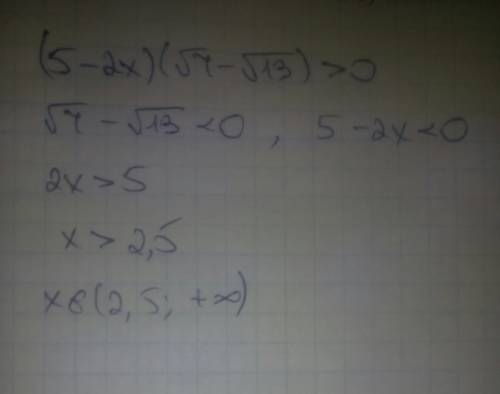 (5-2x)(√7-√13)>0
√7-√13<0, 5-2x<0
2x>5
x>2,5
x∈(2,5; +∞)